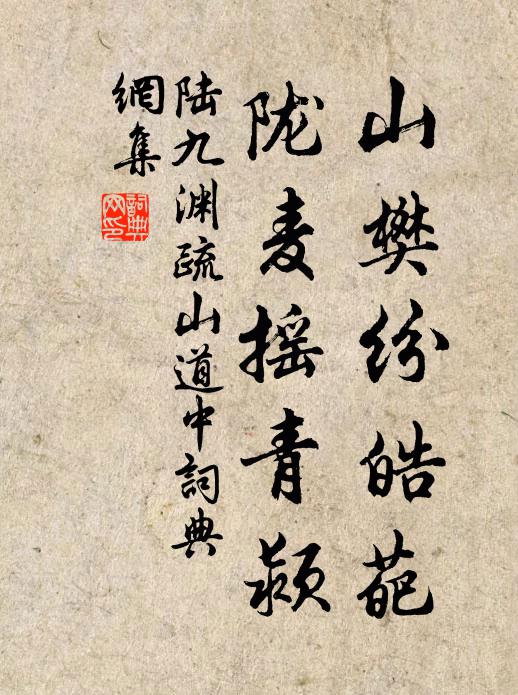 山樊纷皓葩
陇麦摇青颖
陆九渊疏山道中詞典
網集
詞典
网印